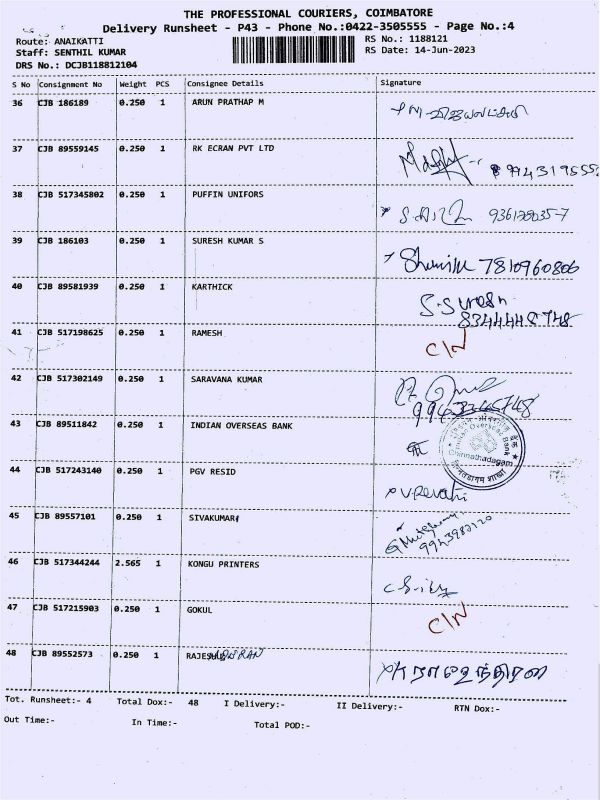 THE PROFESSIONAL COURIERS, COIMBATORE
Delivery Runsheet - P43 - Phone No.:0422-3505555 - Page No.:4
Route: ANAIKATTI RS No.: 1188121
Staff: SENTHIL KUMAR RS Date: 14-Jun-2023
DRS No.: DCJB118812104
S No Consignment No Weight PCS Consignee Details Signature
36 CJB 186189 0.250 1 ARUN PRATHAP M
37 CJB 89559145 0.250 1 RK ECRAN PVT LTD
38 CJB 517345802 0.250 1 PUFFIN UNIFORS
39 CJB 186103 0.250 1 SURESH KUMAR S 7810960806
40 CJB 89581939 0.250 1 KARTHICK S.Suresh
8344448748
41 CJB 517198625 0.250 1 RAMESH C/N
42 CJB 517302149 0.250 1 SARAVANA KUMAR
43 CJB 89511842 0.250 1 INDIAN OVERSEAS BANK
Indian Overseas Bank
Chinnathadagam
44 CJB 517243140 0.250 1 PGV RESID V.Revathi
45 CJB 89557101 0.250 1 SIVAKUMAR
9943982120
46 CJB 517344244 2.565 1 KONGU PRINTERS
47 CJB 517215903 0.250 1 GOKUL C/N
48 CJB 89552573 0.250 1 ராஜேந்திரன்
Tot. Runsheet:- 4 Total Dox:- 48 I Delivery:- II Delivery:- RTN Dox:-
Out Time:- In Time:- Total POD:-